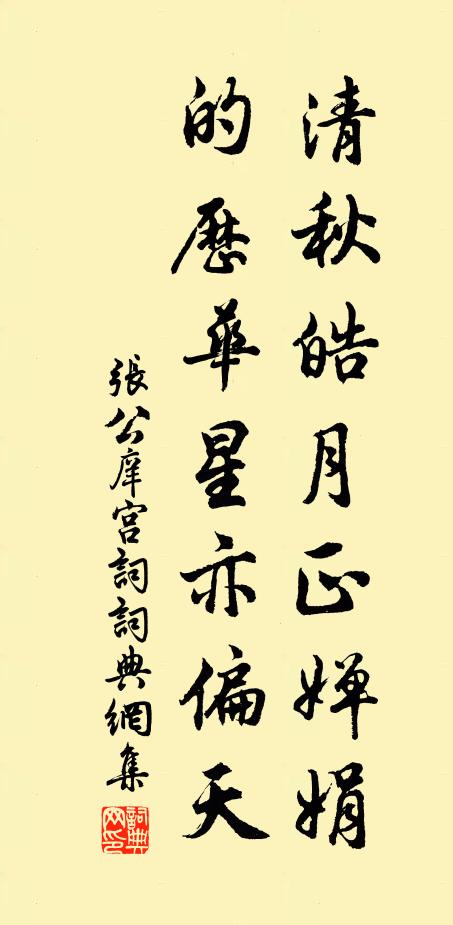 清秋皓月正嬋娟
的歷華星亦偏天
張公庠宮詞詞典網集
詞典网印